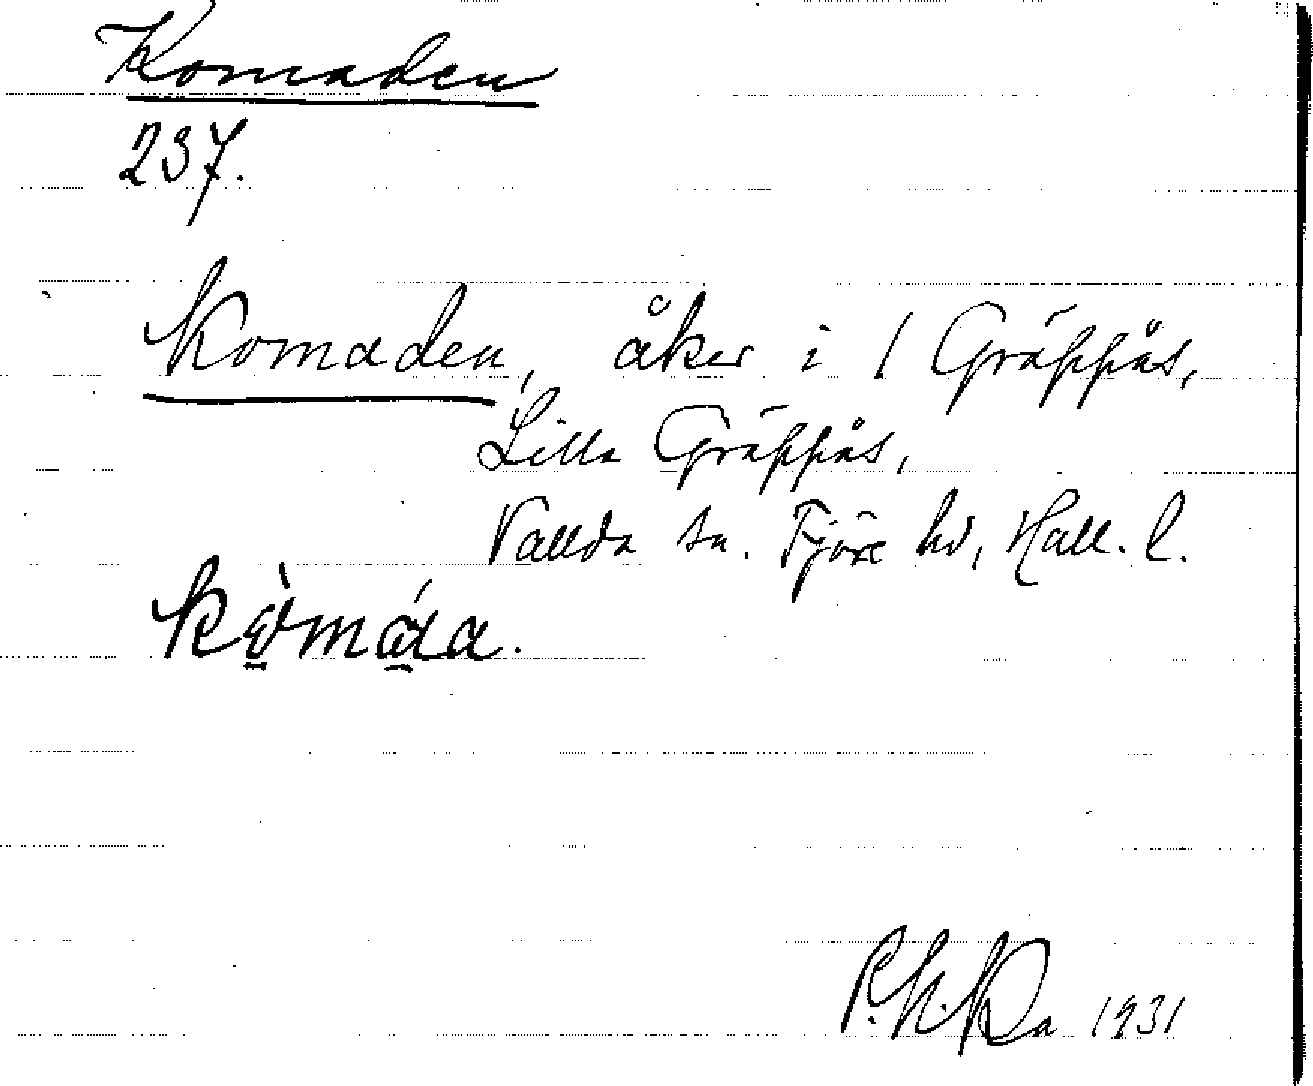 Komaden
237.
Komaden, åker i 1 Gräppås,
Lilla Gräppås,
Vallda sn. Fjäre hd, Hall. l.
1931